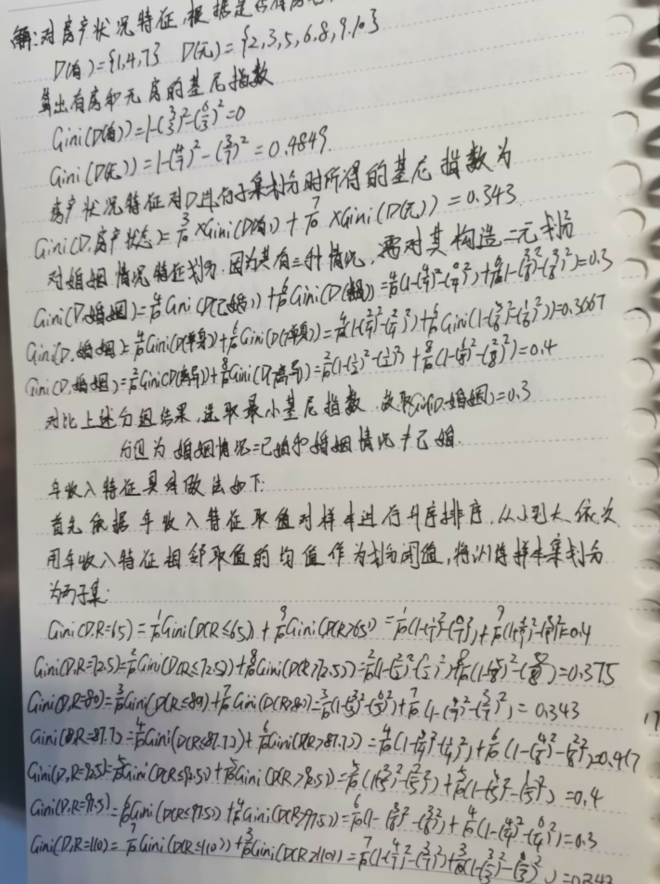 解:对房产状况特征,根据是否有房
D(有)={1,4,7} D(无)={2,3,5,6,8,9,10}
算出有房和无房的基尼指数
Gini(D(有))=1-(3/3)²-(0/3)²=0
Gini(D(无))=1-(4/7)²-(3/7)²=0.4849
房产状况特征对D进行子集划分时所得的基尼指数为
Gini(D,房产状态)=3/10×Gini(D(有))+7/10×Gini(D(无))=0.343
对婚姻情况特征划分,因为其有三种情况,需对其构造二元划分
Gini(D,婚姻)=4/10Gini(D(已婚))+6/10Gini(D())=4/10(1-(4/4)²-(0/4)²)+6/10(1-(3/6)²-(3/6)²)=0.3
Gini(D,婚姻)=4/10Gini(D(单身))+6/10Gini(D(单身))=4/10(1-(2/4)²-(2/4)²)+6/10Gini(1-(5/6)²-(1/6)²)=0.3667
Gini(D,婚姻)=2/10Gini(D(离异))+8/10Gini(D(离异))=2/10(1-(1/2)²-(1/2)²)+8/10(1-(6/8)²-(2/8)²)=0.4
对比上述分组结果,选取最小基尼指数,故取Gini(D,婚姻)=0.3
分组为婚姻情况=已婚和婚姻情况≠已婚.
年收入特征具体做法如下:
首先依据年收入特征取值对样本进行升序排序,从小到大依次
用年收入特征相邻取值的均值作为划分阈值,将训练样本集划分
为两子集:
Gini(D,R=65)=1/10Gini(D(R≤65))+9/10Gini(D(R>65))=0.4
Gini(D,R=72.5)=2/10Gini(D(R≤72.5))+8/10Gini(D(R>72.5))=0.375
Gini(D,R=80)=3/10Gini(D(R≤80))+7/10Gini(D(R>80))=3/10(1-(3/3)²-(0/3)²)+7/10(1-(4/7)²-(3/7)²)=0.343
Gini(D,R=87.7)=4/10Gini(D(R≤87.7))+6/10Gini(D(R>87.7))=4/10(1-(3/4)²-(1/4)²)+6/10(1-(4/6)²-(2/6)²)=0.417
Gini(D,R=92.5)=5/10Gini(D(R≤92.5))+5/10Gini(D(R>92.5))=0.4
Gini(D,R=97.5)=6/10Gini(D(R≤97.5))+4/10Gini(D(R>97.5))=6/10(1-(3/6)²-(3/6)²)+4/10(1-(4/4)²-(0/4)²)=0.3
Gini(D,R=110)=7/10Gini(D(R≤110))+3/10Gini(D(R>110))=7/10(1-(4/7)²-(3/7)²)+3/10(1-(3/3)²-(0/3)²)=0.343